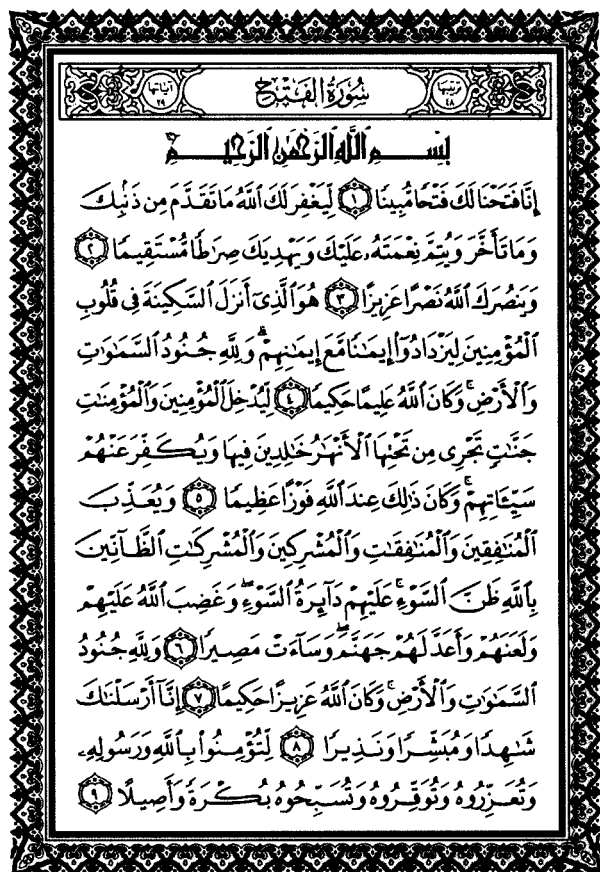 ترتيبها ٤٨ سُورَةُ الْفَتْحِ آياتها ٢٩
بِسْمِ ٱللَّهِ ٱلرَّحْمَٰنِ ٱلرَّحِيمِ
إِنَّا فَتَحْنَا لَكَ فَتْحًا مُّبِينًا ١ لِّيَغْفِرَ لَكَ ٱللَّهُ مَا تَقَدَّمَ مِن ذَنۢبِكَ
وَمَا تَأَخَّرَ وَيُتِمَّ نِعْمَتَهُۥ عَلَيْكَ وَيَهْدِيَكَ صِرَٰطًا مُّسْتَقِيمًا ٢
وَيَنصُرَكَ ٱللَّهُ نَصْرًا عَزِيزًا ٣ هُوَ ٱلَّذِىٓ أَنزَلَ ٱلسَّكِينَةَ فِى قُلُوبِ
ٱلْمُؤْمِنِينَ لِيَزْدَادُوٓا۟ إِيمَٰنًا مَّعَ إِيمَٰنِهِمْ ۗ وَلِلَّهِ جُنُودُ ٱلسَّمَٰوَٰتِ
وَٱلْأَرْضِ ۚ وَكَانَ ٱللَّهُ عَلِيمًا حَكِيمًا ٤ لِّيُدْخِلَ ٱلْمُؤْمِنِينَ وَٱلْمُؤْمِنَٰتِ
جَنَّٰتٍ تَجْرِى مِن تَحْتِهَا ٱلْأَنْهَٰرُ خَٰلِدِينَ فِيهَا وَيُكَفِّرَ عَنْهُمْ
سَيِّـَٔاتِهِمْ ۚ وَكَانَ ذَٰلِكَ عِندَ ٱللَّهِ فَوْزًا عَظِيمًا ٥ وَيُعَذِّبَ
ٱلْمُنَٰفِقِينَ وَٱلْمُنَٰفِقَٰتِ وَٱلْمُشْرِكِينَ وَٱلْمُشْرِكَٰتِ ٱلظَّآنِّينَ
بِٱللَّهِ ظَنَّ ٱلسَّوْءِ ۚ عَلَيْهِمْ دَآئِرَةُ ٱلسَّوْءِ ۖ وَغَضِبَ ٱللَّهُ عَلَيْهِمْ
وَلَعَنَهُمْ وَأَعَدَّ لَهُمْ جَهَنَّمَ ۖ وَسَآءَتْ مَصِيرًا ٦ وَلِلَّهِ جُنُودُ
ٱلسَّمَٰوَٰتِ وَٱلْأَرْضِ ۚ وَكَانَ ٱللَّهُ عَزِيزًا حَكِيمًا ٧ إِنَّآ أَرْسَلْنَٰكَ
شَٰهِدًا وَمُبَشِّرًا وَنَذِيرًا ٨ لِّتُؤْمِنُوا۟ بِٱللَّهِ وَرَسُولِهِۦ
وَتُعَزِّرُوهُ وَتُوَقِّرُوهُ وَتُسَبِّحُوهُ بُكْرَةً وَأَصِيلًا ٩